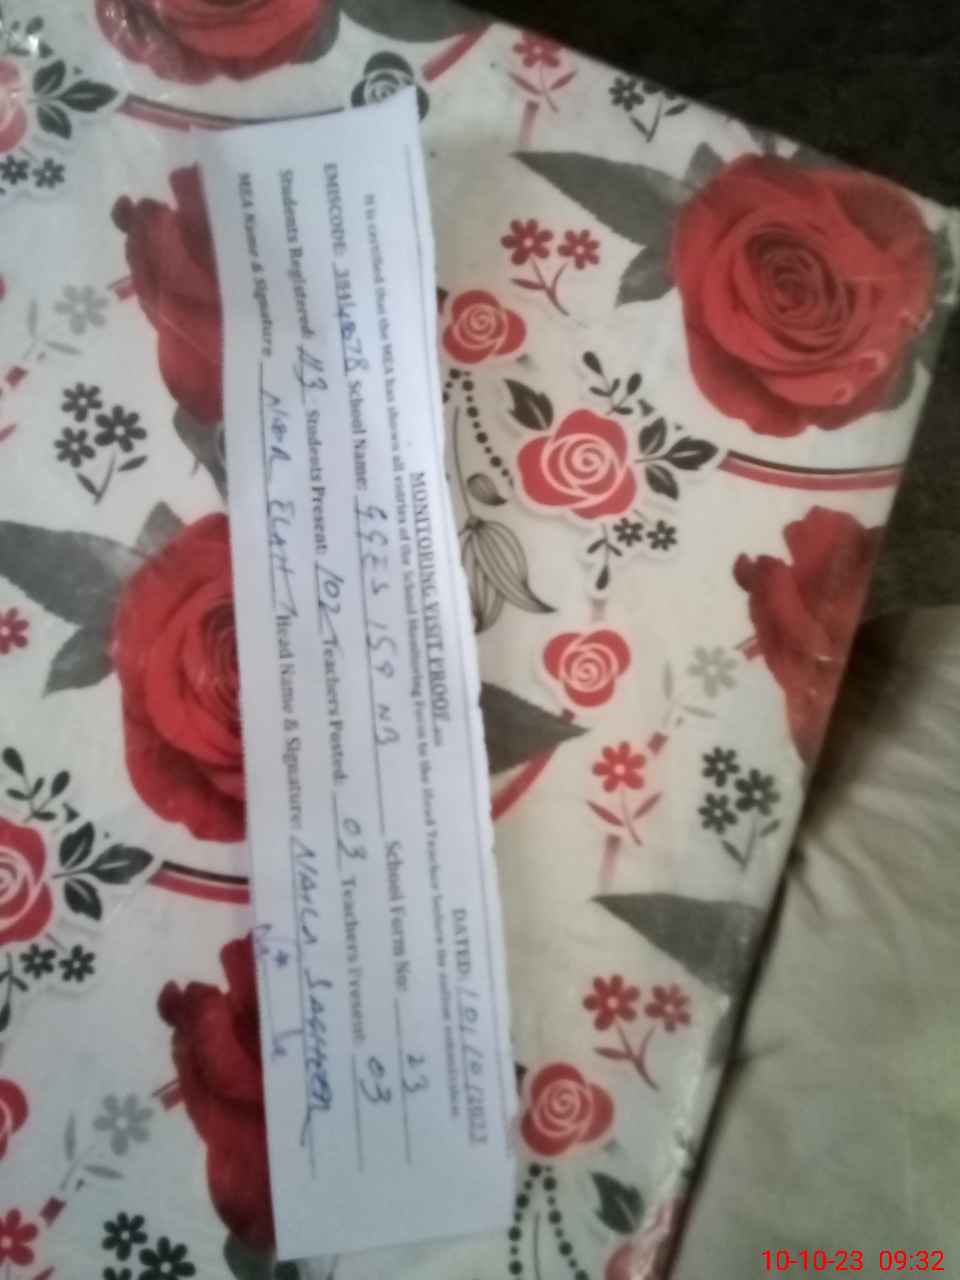 MONITORING VISIT PROOF
DATED: 10/10/2023
It is certified that the MEA has shown all entries of the School Monitoring Form to the Head Teacher before the online submission
EMISCODE: School Name: GGES 159 NB School Form No: 23
Students Registered: 113 Students Present: 102 Teachers Posted: 03 Teachers Present: 03
MEA Name & Signature Head Name & Signature: Naila
10-10-23 09:32